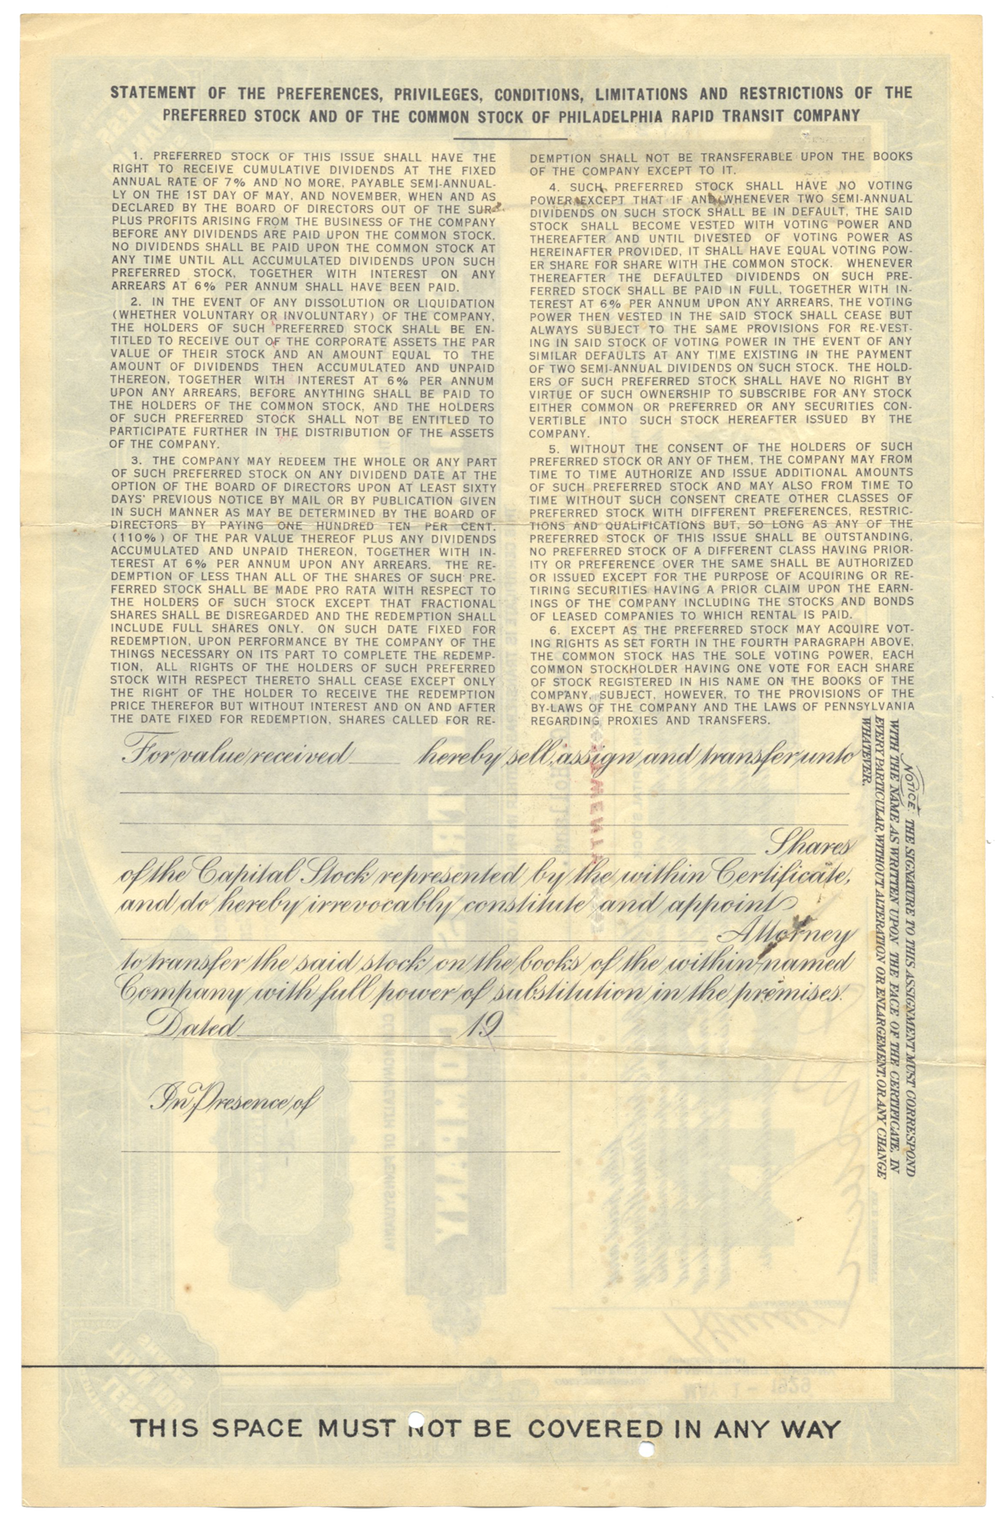 STATEMENT OF THE PREFERENCES, PRIVILEGES, CONDITIONS, LIMITATIONS AND RESTRICTIONS OF THE
PREFERRED STOCK AND OF THE COMMON STOCK OF PHILADELPHIA RAPID TRANSIT COMPANY
1. PREFERRED STOCK OF THIS ISSUE SHALL HAVE THE
RIGHT TO RECEIVE CUMULATIVE DIVIDENDS AT THE FIXED
ANNUAL RATE OF 7% AND NO MORE, PAYABLE SEMI-ANNUAL-
LY ON THE 1ST DAY OF MAY, AND NOVEMBER, WHEN AND AS
DECLARED BY THE BOARD OF DIRECTORS OUT OF THE SUR-
PLUS PROFITS ARISING FROM THE BUSINESS OF THE COMPANY
BEFORE ANY DIVIDENDS ARE PAID UPON THE COMMON STOCK.
NO DIVIDENDS SHALL BE PAID UPON THE COMMON STOCK AT
ANY TIME UNTIL ALL ACCUMULATED DIVIDENDS UPON SUCH
PREFERRED STOCK, TOGETHER WITH INTEREST ON ANY
ARREARS AT 6% PER ANNUM SHALL HAVE BEEN PAID.
2. IN THE EVENT OF ANY DISSOLUTION OR LIQUIDATION
(WHETHER VOLUNTARY OR INVOLUNTARY) OF THE COMPANY,
THE HOLDERS OF SUCH PREFERRED STOCK SHALL BE EN-
TITLED TO RECEIVE OUT OF THE CORPORATE ASSETS THE PAR
VALUE OF THEIR STOCK AND AN AMOUNT EQUAL TO THE
AMOUNT OF DIVIDENDS THEN ACCUMULATED AND UNPAID
THEREON, TOGETHER WITH INTEREST AT 6% PER ANNUM
UPON ANY ARREARS, BEFORE ANYTHING SHALL BE PAID TO
THE HOLDERS OF THE COMMON STOCK, AND THE HOLDERS
OF SUCH PREFERRED STOCK SHALL NOT BE ENTITLED TO
PARTICIPATE FURTHER IN THE DISTRIBUTION OF THE ASSETS
OF THE COMPANY.
3. THE COMPANY MAY REDEEM THE WHOLE OR ANY PART
OF SUCH PREFERRED STOCK ON ANY DIVIDEND DATE AT THE
OPTION OF THE BOARD OF DIRECTORS UPON AT LEAST SIXTY
DAYS' PREVIOUS NOTICE BY MAIL OR BY PUBLICATION GIVEN
IN SUCH MANNER AS MAY BE DETERMINED BY THE BOARD OF
DIRECTORS BY PAYING ONE HUNDRED TEN PER CENT.
(110%) OF THE PAR VALUE THEREOF PLUS ANY DIVIDENDS
ACCUMULATED AND UNPAID THEREON, TOGETHER WITH IN-
TEREST AT 6% PER ANNUM UPON ANY ARREARS. THE RE-
DEMPTION OF LESS THAN ALL OF THE SHARES OF SUCH PRE-
FERRED STOCK SHALL BE MADE PRO RATA WITH RESPECT TO
THE HOLDERS OF SUCH STOCK EXCEPT THAT FRACTIONAL
SHARES SHALL BE DISREGARDED AND THE REDEMPTION SHALL
INCLUDE FULL SHARES ONLY. ON SUCH DATE FIXED FOR
REDEMPTION, UPON PERFORMANCE BY THE COMPANY OF THE
THINGS NECESSARY ON ITS PART TO COMPLETE THE REDEMP-
TION, ALL RIGHTS OF THE HOLDERS OF SUCH PREFERRED
STOCK WITH RESPECT THERETO SHALL CEASE EXCEPT ONLY
THE RIGHT OF THE HOLDER TO RECEIVE THE REDEMPTION
PRICE THEREFOR BUT WITHOUT INTEREST AND ON AND AFTER
THE DATE FIXED FOR REDEMPTION, SHARES CALLED FOR RE-
DEMPTION SHALL NOT BE TRANSFERABLE UPON THE BOOKS
OF THE COMPANY EXCEPT TO IT.
4. SUCH PREFERRED STOCK SHALL HAVE NO VOTING
POWER EXCEPT THAT IF AND WHENEVER TWO SEMI-ANNUAL
DIVIDENDS ON SUCH STOCK SHALL BE IN DEFAULT, THE SAID
STOCK SHALL BECOME VESTED WITH VOTING POWER AND
THEREAFTER AND UNTIL DIVESTED OF VOTING POWER AS
HEREINAFTER PROVIDED, IT SHALL HAVE EQUAL VOTING POW-
ER SHARE FOR SHARE WITH THE COMMON STOCK. WHENEVER
THEREAFTER THE DEFAULTED DIVIDENDS ON SUCH PRE-
FERRED STOCK SHALL BE PAID IN FULL, TOGETHER WITH IN-
TEREST AT 6% PER ANNUM UPON ANY ARREARS, THE VOTING
POWER THEN VESTED IN THE SAID STOCK SHALL CEASE BUT
ALWAYS SUBJECT TO THE SAME PROVISIONS FOR RE-VEST-
ING IN SAID STOCK OF VOTING POWER IN THE EVENT OF ANY
SIMILAR DEFAULTS AT ANY TIME EXISTING IN THE PAYMENT
OF TWO SEMI-ANNUAL DIVIDENDS ON SUCH STOCK. THE HOLD-
ERS OF SUCH PREFERRED STOCK SHALL HAVE NO RIGHT BY
VIRTUE OF SUCH OWNERSHIP TO SUBSCRIBE FOR ANY STOCK
EITHER COMMON OR PREFERRED OR ANY SECURITIES CON-
VERTIBLE INTO SUCH STOCK HEREAFTER ISSUED BY THE
COMPANY.
5. WITHOUT THE CONSENT OF THE HOLDERS OF SUCH
PREFERRED STOCK OR ANY OF THEM, THE COMPANY MAY FROM
TIME TO TIME AUTHORIZE AND ISSUE ADDITIONAL AMOUNTS
OF SUCH PREFERRED STOCK AND MAY ALSO FROM TIME TO
TIME WITHOUT SUCH CONSENT CREATE OTHER CLASSES OF
PREFERRED STOCK WITH DIFFERENT PREFERENCES, RESTRIC-
TIONS AND QUALIFICATIONS BUT, SO LONG AS ANY OF THE
PREFERRED STOCK OF THIS ISSUE SHALL BE OUTSTANDING,
NO PREFERRED STOCK OF A DIFFERENT CLASS HAVING PRIOR-
ITY OR PREFERENCE OVER THE SAME SHALL BE AUTHORIZED
OR ISSUED EXCEPT FOR THE PURPOSE OF ACQUIRING OR RE-
TIRING SECURITIES HAVING A PRIOR CLAIM UPON THE EARN-
INGS OF THE COMPANY INCLUDING THE STOCKS AND BONDS
OF LEASED COMPANIES TO WHICH RENTAL IS PAID.
6. EXCEPT AS THE PREFERRED STOCK MAY ACQUIRE VOT-
ING RIGHTS AS SET FORTH IN THE FOURTH PARAGRAPH ABOVE,
THE COMMON STOCK HAS THE SOLE VOTING POWER, EACH
COMMON STOCKHOLDER HAVING ONE VOTE FOR EACH SHARE
OF STOCK REGISTERED IN HIS NAME ON THE BOOKS OF THE
COMPANY, SUBJECT, HOWEVER, TO THE PROVISIONS OF THE
BY-LAWS OF THE COMPANY AND THE LAWS OF PENNSYLVANIA
REGARDING PROXIES AND TRANSFERS.
For value received hereby sell, assign and transfer unto
Shares
of the Capital Stock represented by the within Certificate,
and do hereby irrevocably constitute and appoint
Attorney
to transfer the said stock on the books of the within-named
Company with full power of substitution in the premises.
Dated 19
In Presence of
NOTICE. THE SIGNATURE TO THIS ASSIGNMENT MUST CORRESPOND
WITH THE NAME AS WRITTEN UPON THE FACE OF THE CERTIFICATE, IN
EVERY PARTICULAR, WITHOUT ALTERATION OR ENLARGEMENT, OR ANY CHANGE
WHATEVER.
THIS SPACE MUST NOT BE COVERED IN ANY WAY